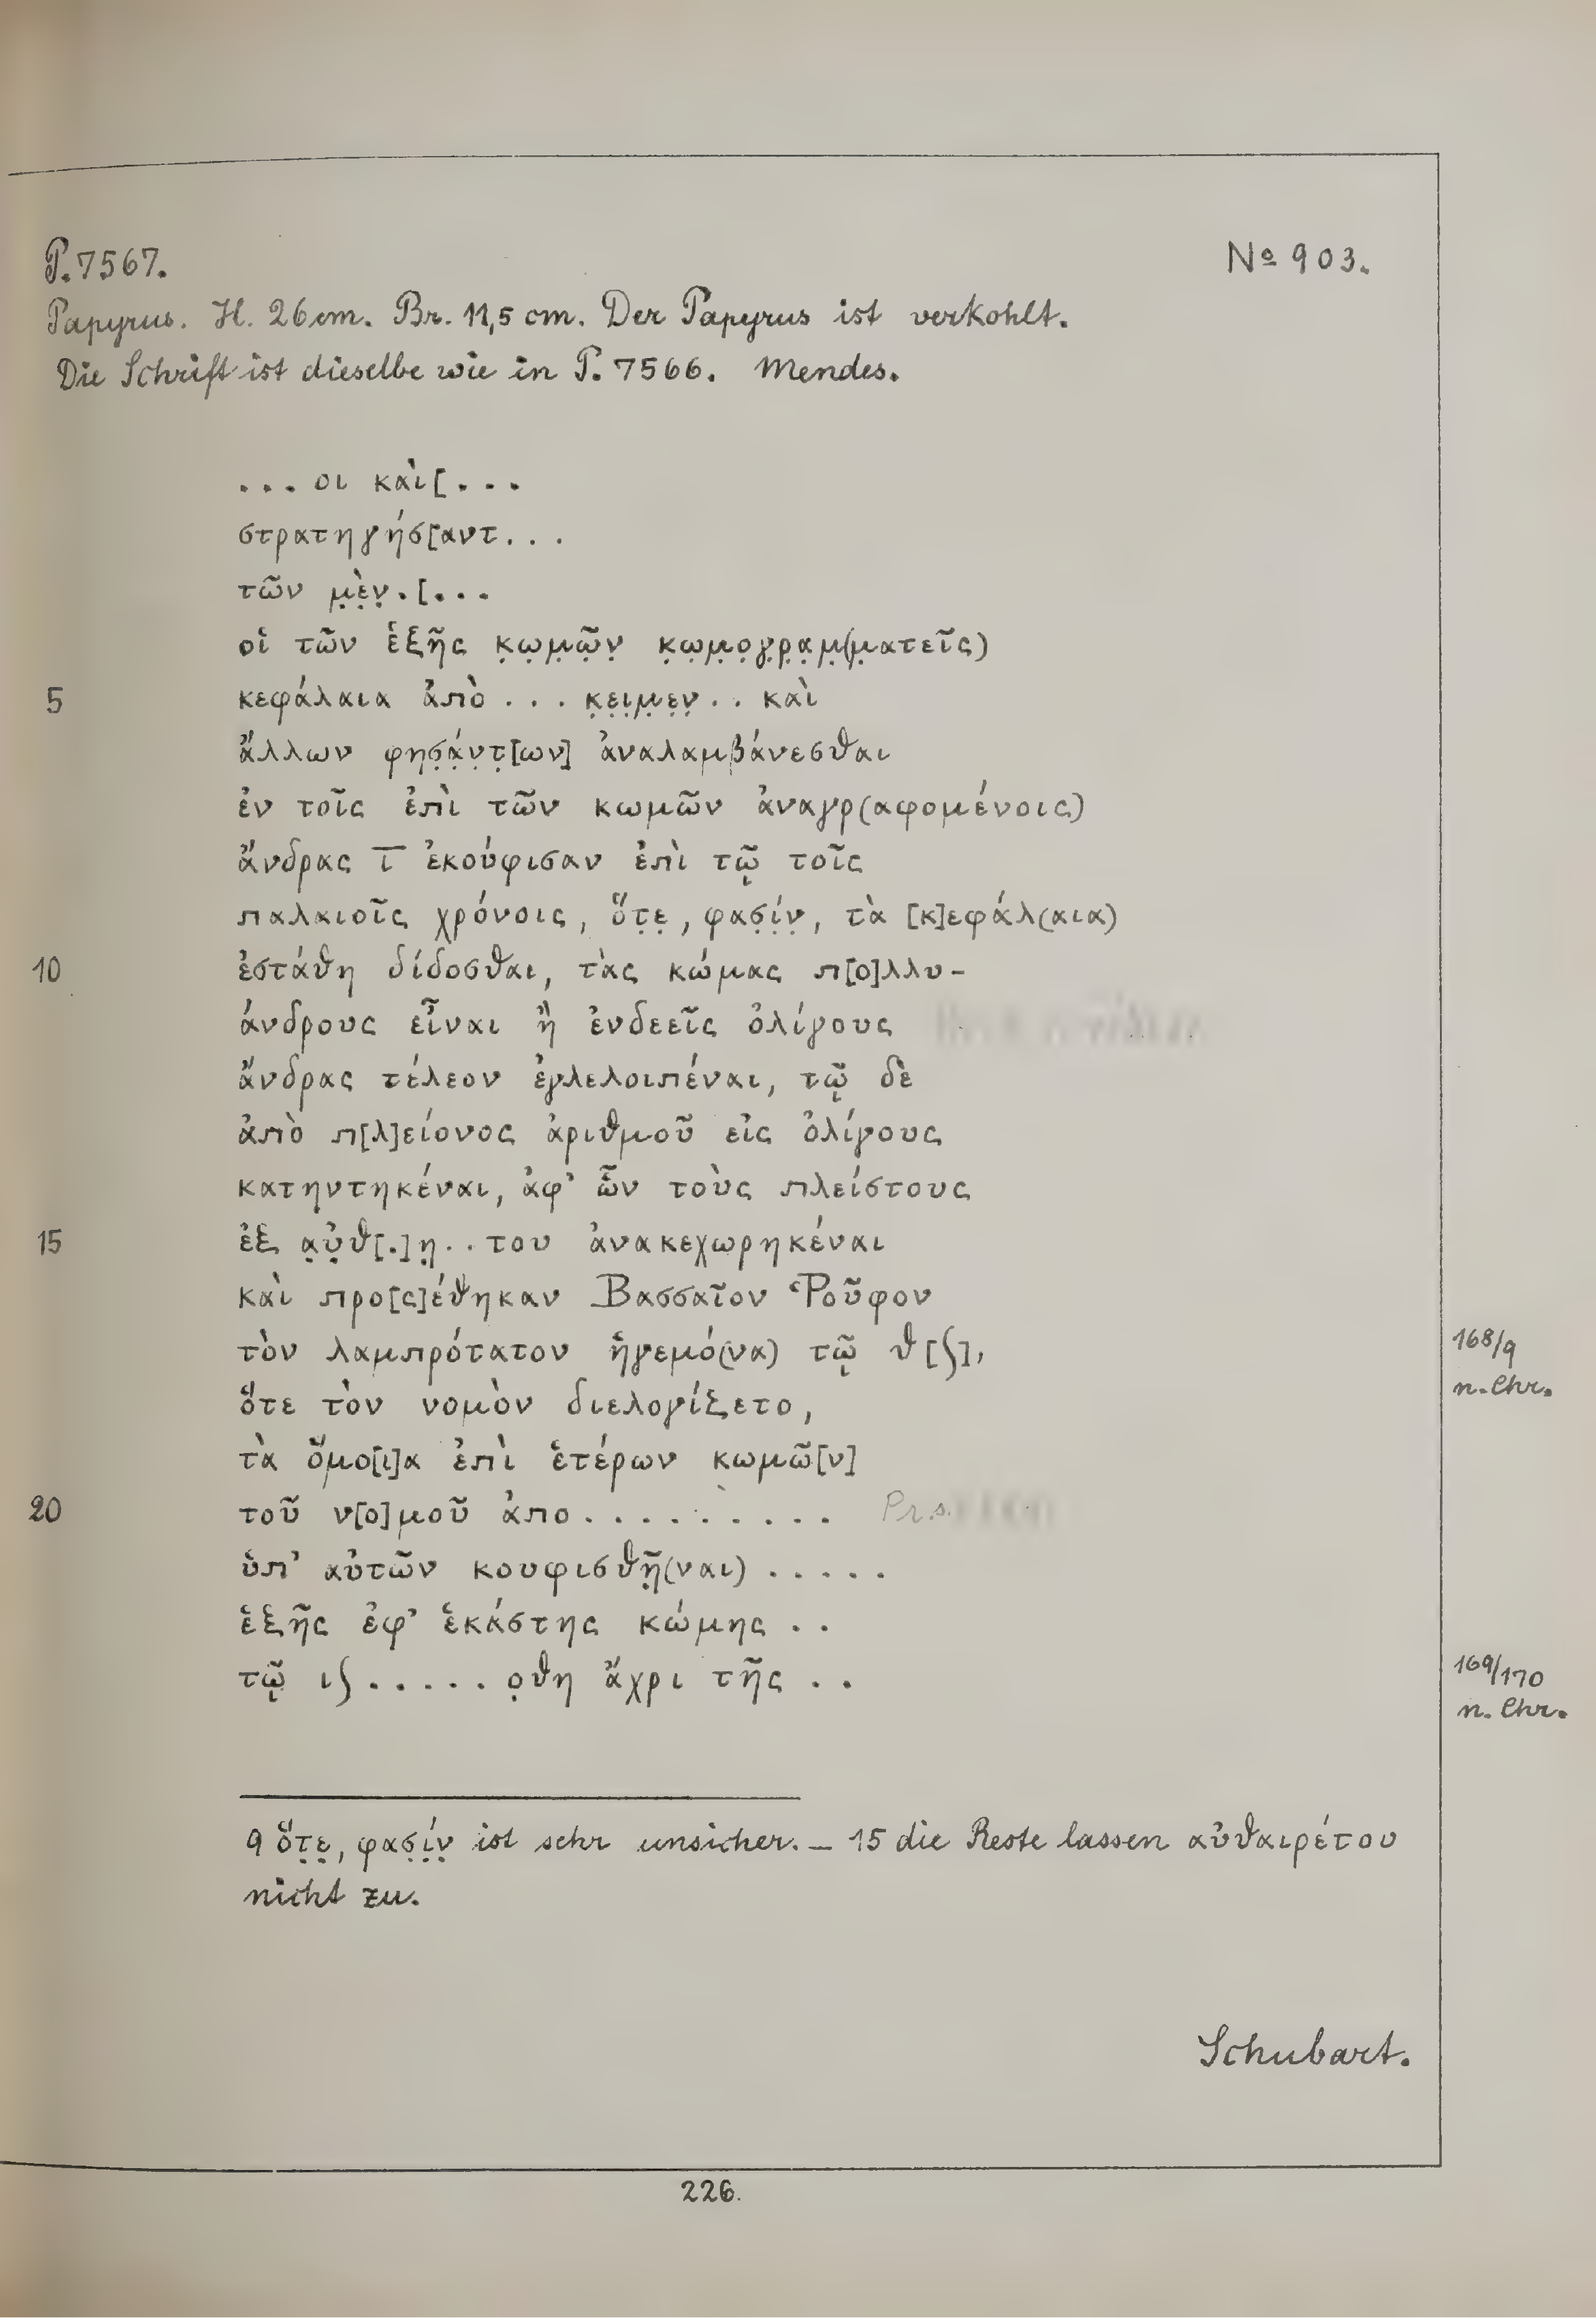 P. 7567. Nº 903.
Papyrus. H. 26 cm. Br. 11,5 cm. Der Papyrus ist verkohlt.
Die Schrift ist dieselbe wie in P. 7566. Mendes.
... οι καὶ[...
στρατηγήσ[αντ...
τῶν μ̣ὲ̣ν̣.[...
οἱ τῶν ἑξῆς κ̣ω̣μ̣ῶ̣ν̣ κ̣ω̣μ̣ο̣γ̣ρ̣α̣μ̣(μ̣ατεῖς)
5 κεφάλαια ἀπὸ ... κ̣ε̣ι̣μ̣ε̣ν̣.. καὶ
ἄλλων φησ̣ά̣ν̣τ̣[ων] ἀναλαμβάνεσθαι
ἐν τοῖς ἐπὶ τῶν κωμῶν ἀναγρ(αφομένοις)
ἄνδρας τ̅ ἐκούφισαν ἐπὶ τῷ τοῖς
παλαιοῖς χρόνοις, ὅτ̣ε̣, φασ̣ί̣ν̣, τὰ [κ]εφάλ(αια)
10 ἐστάθη δίδοσθαι, τὰς κώμας π[ο]λλυ-
άνδρους εἶναι ἢ ἐνδεεῖς ὀλίγους
ἄνδρας τέλεον ἐγλελοιπέναι, τῷ δὲ
ἀπὸ π[λ]είονος ἀριθμοῦ εἰς ὀλίγους
κατηντηκέναι, ἀφ' ὧν τοὺς πλείστους
15 ἐξ α̣ὐ̣θ[.]η̣..του ἀνακεχωρηκέναι
καὶ προ[ς]έθηκαν Βασσαῖον Ῥοῦφον
τὸν λαμπρότατον ἡγεμό(να) τῷ θ[ʃ], 168/9
n. Chr.
ὅτε τὸν νομὸν διελογίζετο,
τὰ ὅμο[ι]α ἐπὶ ἑτέρων κωμῶ[ν]
20 τοῦ ν[ο]μοῦ ἀπο.........
ὑπ' αὐτῶν κουφισθῆ̣(ναι) .....
ἑξῆς ἐφ' ἑκάστης κώμης ..
τῷ ιʃ.....ο̣θη ἄχρι τῆς .. 169/170
n. Chr.
9 ὅτ̣ε̣, φασ̣ί̣ν̣ ist sehr unsicher. – 15 die Reste lassen αὐθαιρέτου
nicht zu.
Schubart.
226.